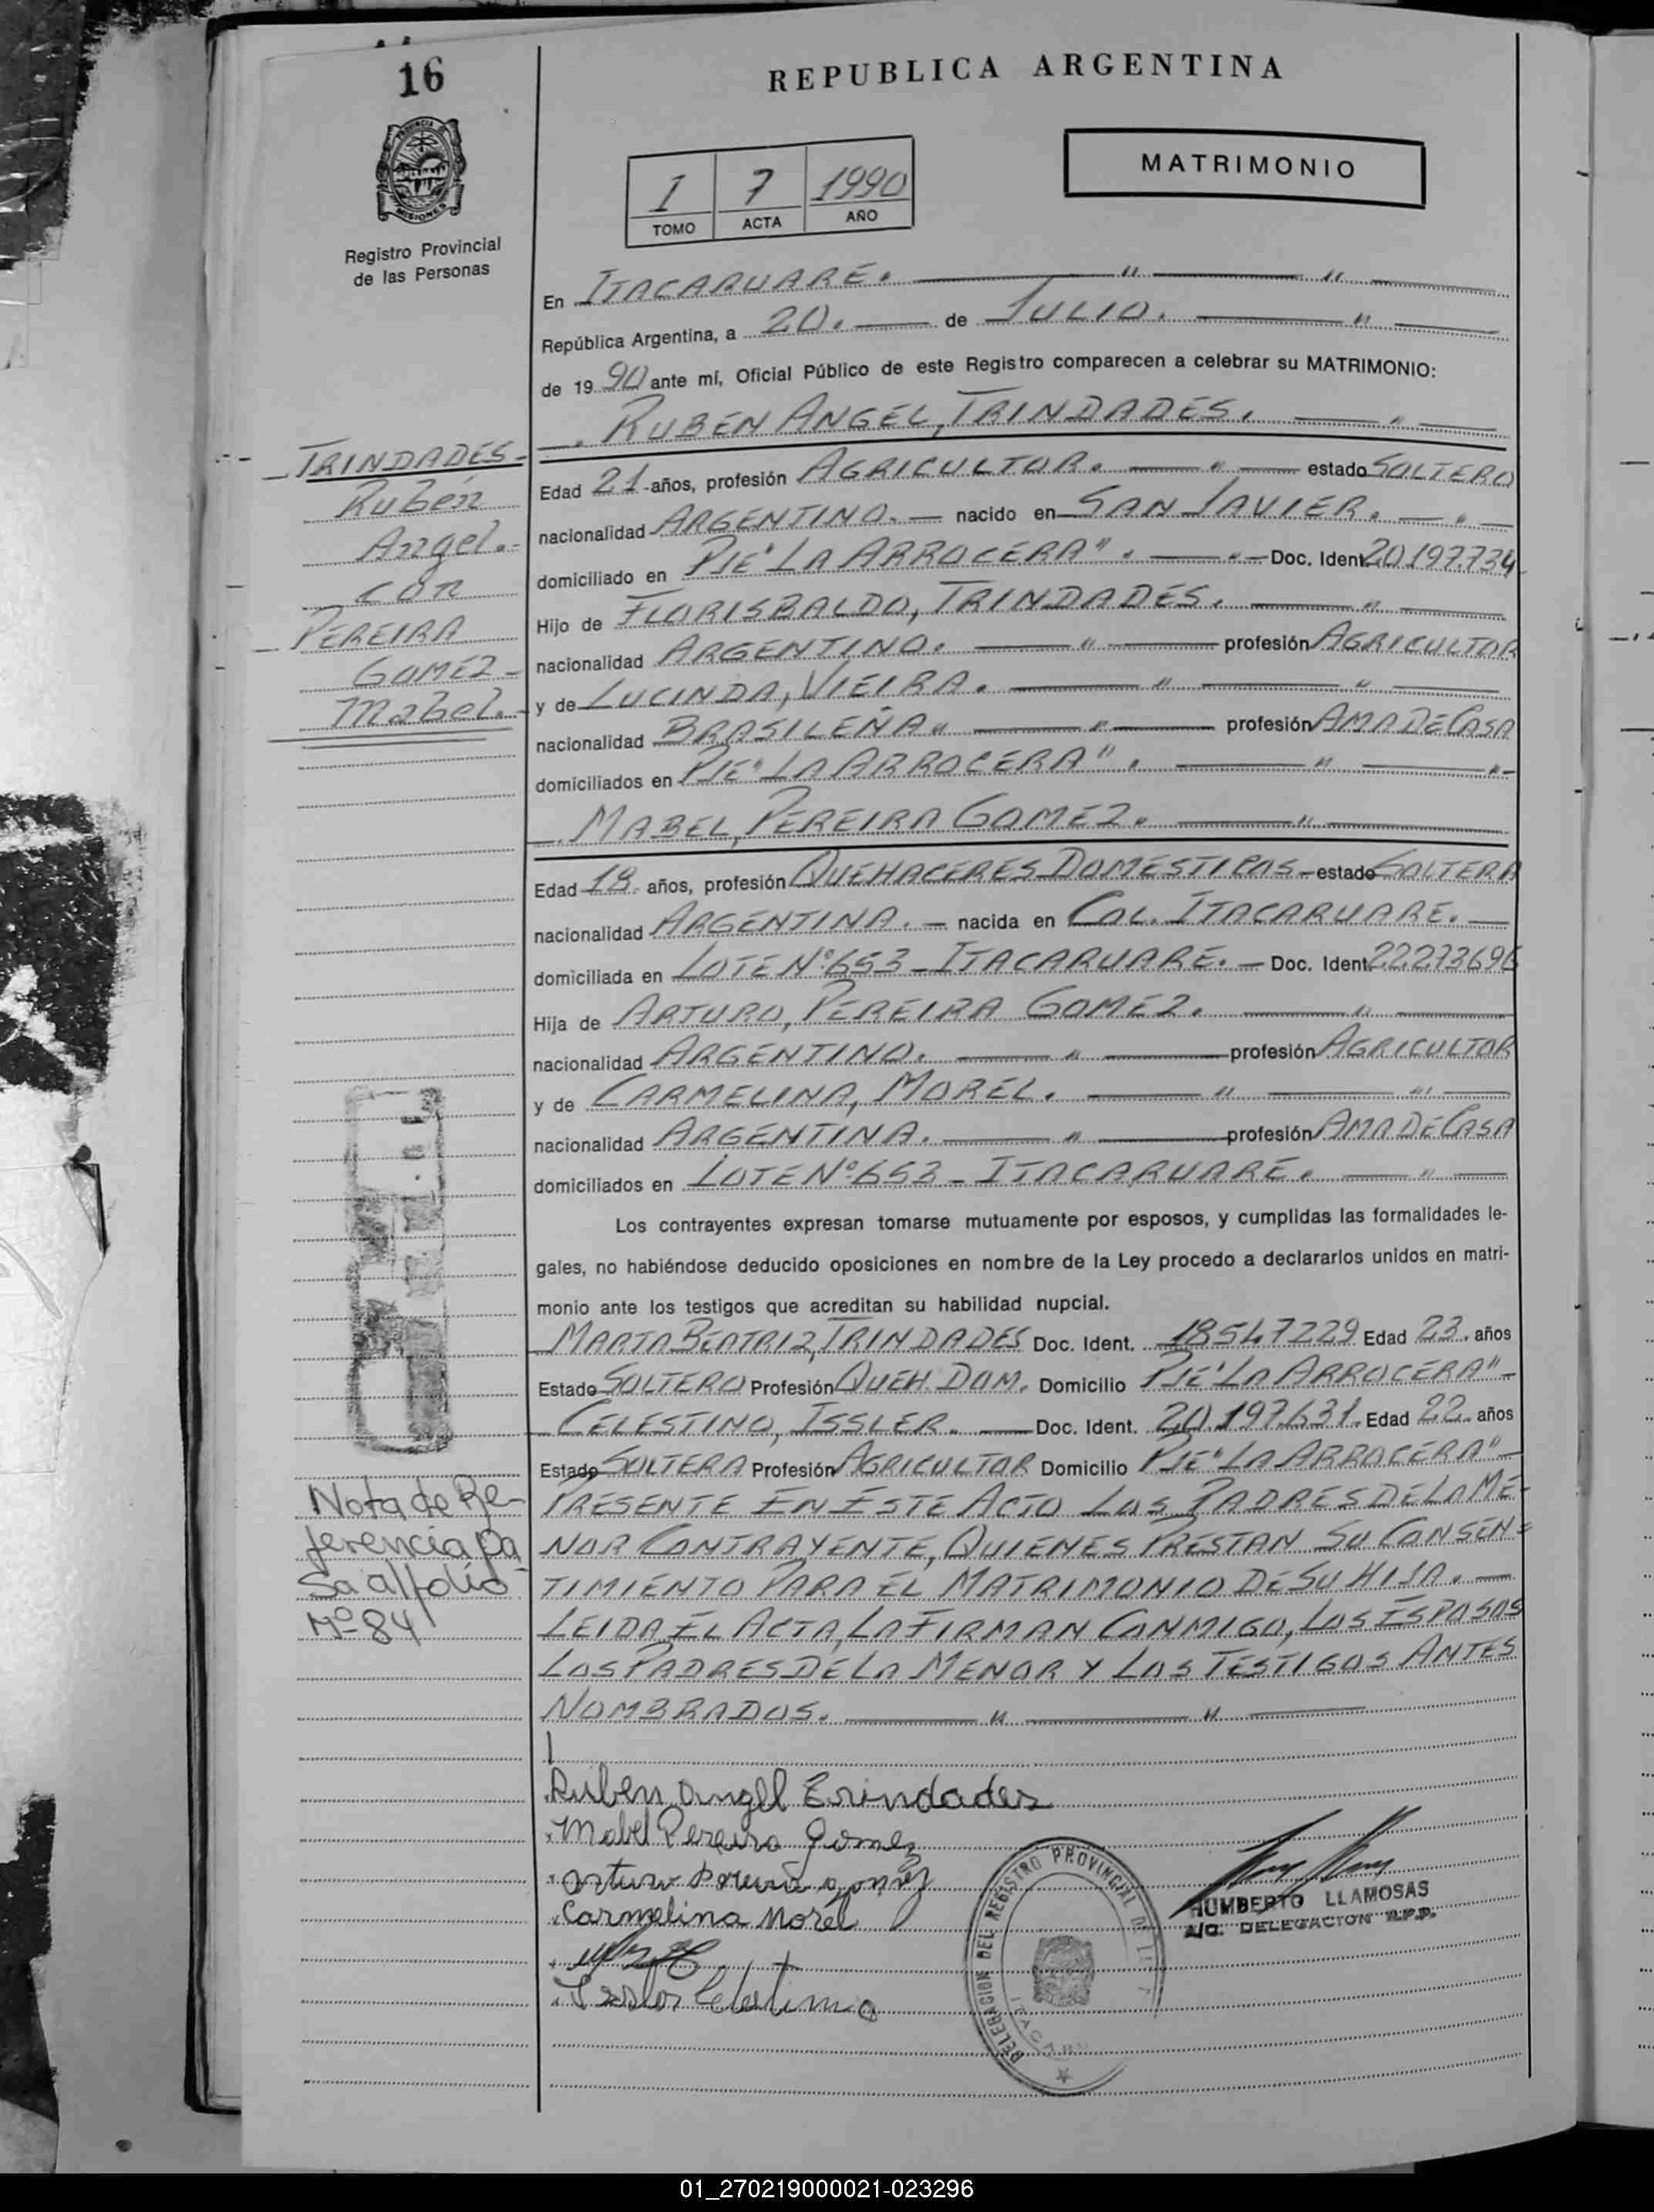 16
REPUBLICA ARGENTINA
PROVINCIA DE
MISIONES
Registro Provincial
de las Personas
1 7 1990
TOMO ACTA AÑO
MATRIMONIO
En ITACARUARE. — " — " —
República Argentina, a 20. — de JULIO. — " —
de 1990 ante mí, Oficial Público de este Registro comparecen a celebrar su MATRIMONIO:
—. RUBEN ANGEL, TRINDADES. — " —
TRINDADES-
Rubén
Angel.-
con
PEREIRA
GOMEZ-
Mabel.-
Edad 21 años, profesión AGRICULTOR. — " — estado SOLTERO
nacionalidad ARGENTINO. — nacido en SAN JAVIER. — " —
domiciliado en PJE "LA ARROCERA". — " — Doc. Ident. 20.197.734
Hijo de FLORISBALDO, TRINDADES. — " —
nacionalidad ARGENTINO. — " — profesión AGRICULTOR
y de LUCINDA, VIEIRA. — " — " —
nacionalidad BRASILEÑA " — " — profesión AMA DE CASA
domiciliados en PJE "LA ARROCERA". — " — " -
—. MABEL, PEREIRA GOMEZ. — " —
Edad 18 años, profesión QUEHACERES DOMESTICOS - estado SOLTERA
nacionalidad ARGENTINA. — nacida en COL. ITACARUARE. —
domiciliada en LOTE Nº 653 - ITACARUARE. — Doc. Ident. 22273696
Hija de ARTURO, PEREIRA GOMEZ. — " —
nacionalidad ARGENTINO. — " — profesión AGRICULTOR
y de CARMELINA, MOREL. — " — " —
nacionalidad ARGENTINA. — " — profesión AMA DE CASA
domiciliados en LOTE Nº 653 - ITACARUARE. — " —
Los contrayentes expresan tomarse mutuamente por esposos, y cumplidas las formalidades le-
gales, no habiéndose deducido oposiciones en nombre de la Ley procedo a declararlos unidos en matri-
monio ante los testigos que acreditan su habilidad nupcial.
MARTA BEATRIZ, TRINDADES Doc. Ident. 18547229 Edad 23. años
Estado SOLTERO Profesión QUEH. DOM. Domicilio PJE "LA ARROCERA" -
CELESTINO, ISSLER. — Doc. Ident. 20.197.631. Edad 22 años
Estado SOLTERA Profesión AGRICULTOR Domicilio PJE "LA ARROCERA" -
PRESENTE EN ESTE ACTO LOS PADRES DE LA ME-
NOR CONTRAYENTE, QUIENES PRESTAN SU CONSEN=
TIMIENTO PARA EL MATRIMONIO DE SU HIJA. —
LEIDA EL ACTA, LA FIRMAN CONMIGO, LOS ESPOSOS
LOS PADRES DE LA MENOR Y LOS TESTIGOS ANTES
NOMBRADOS. — " — " —
Nota de Re-
ferencia pa
sa al folio
Nº 84
Ruben Angel Trindades
Mabel Pereira Gomez
Arturo Pereira Gomez
Carmelina Morel
Issler Celestino
DELEGACION DEL REGISTRO PROVINCIAL DE
HUMBERTO LLAMOSAS
A/C. DELEGACION R.P.P.
01_270219000021-023296